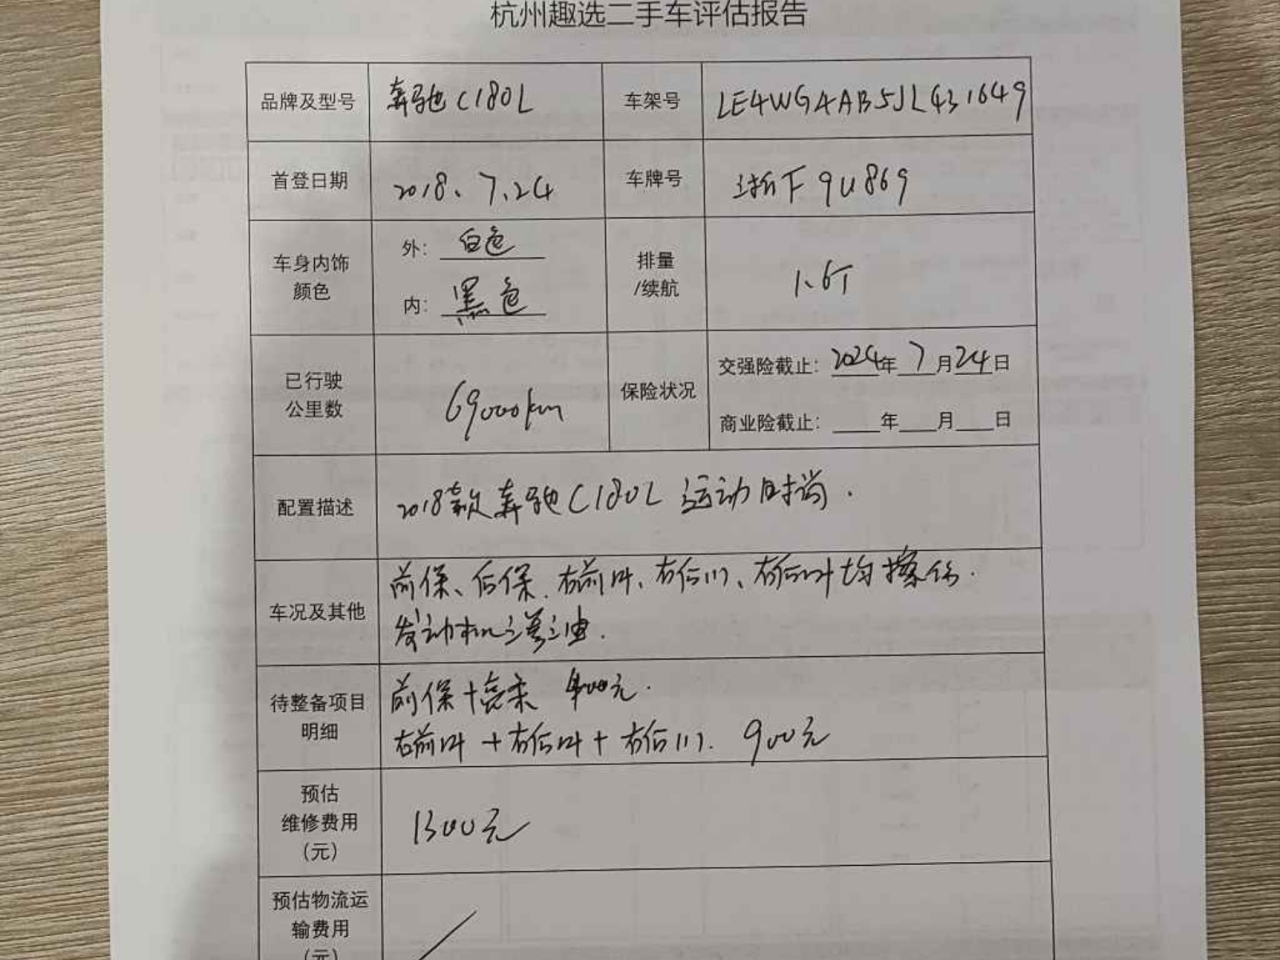 杭州趣选二手车评估报告
品牌及型号 奔驰C180L 车架号 LE4WG4AB5JL431649
首登日期 2018、7、24 车牌号 浙F9U869
车身内饰
颜色
外: 白色
内: 黑色
排量
/续航
1.6T
已行驶
公里数
69000km
保险状况
交强险截止: 2024年7月24日
商业险截止: ____年___月___日
配置描述 2018款奔驰C180L 运动时尚.
车况及其他
前保、后保、右前叶、右后门、右后叶均擦伤.
发动机渗油.
待整备项目
明细
前保+后保 400元.
右前叶+右后叶+右后门. 900元
预估
维修费用
(元)
1300元
预估物流运
输费用
(元)